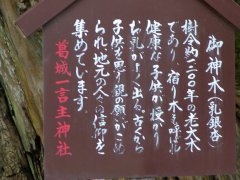 御神木(乳銀杏)
樹令約一二〇〇年の老大木
であり、宿り木とも呼ばれ
健康な子供が授かり
お乳がよく出る。古くから
子供を思う親の願がこめ
られ、地元の人々の信仰を
集めています。
葛城一言主神社